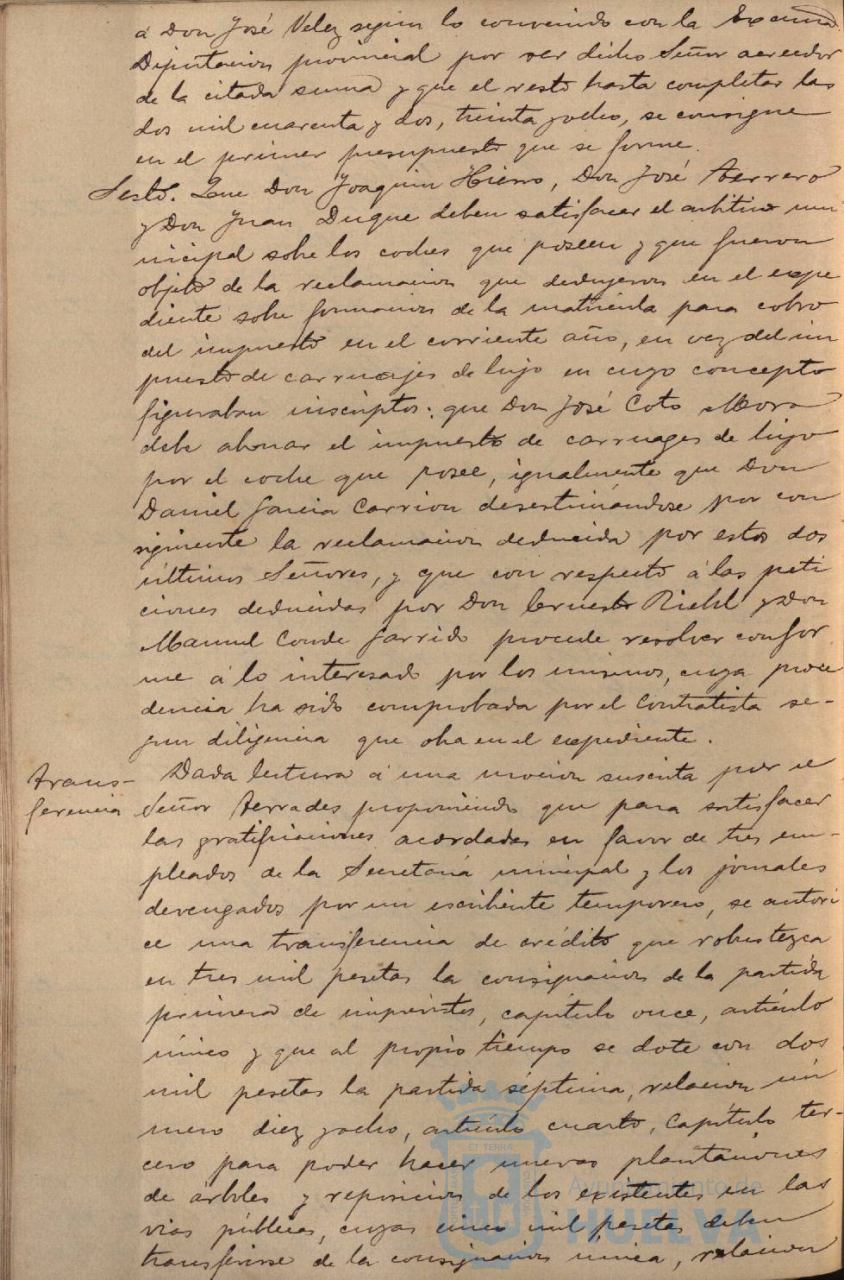 á Don José Velez segun lo convenido con la Excma
Diputacion provincial por ser dicho Señor acreedor
de la citada suma y que el resto hasta completar las
dos mil cuarenta y dos, treinta y ocho, se consigne
en el primer presupuesto que se forme.
Sesto. Que Don Joaquin Hierro, Don José Ferrero
y Don Juan Duque deben satisfacer el arbitrio mu
nicipal sobre los coches que poseen y que fueron
objeto de la reclamacion que dedujeron en el espe
diente sobre formacion de la matrícula para cobro
del impuesto en el corriente año, en vez del im
puesto de carruajes de lujo en cuyo concepto
figuraban inscriptos; que Don José Coto Mora
debe abonar el impuesto de carruages de lujo
por el coche que posee, igualmente que Don
Daniel Garcia Carrion desestimándose por con
siguiente la reclamacion deducida por estos dos
últimos Señores, y que con respecto á las peti
ciones deducidas por Don Ernesto Riehl y Don
Manuel Conde Garrido procede resolver confor
me á lo interesado por los mismos, cuya proce
dencia ha sido comprobada por el Contratista se-
gun diligencia que obra en el expediente.
Trans-
ferencia
Dada lectura á una mocion suscrita por el
Señor Terrades proponiendo que para satisfacer
las gratificaciones acordadas en favor de tres em-
pleados de la Secretaría municipal y los jornales
devengados por un escribiente temporero, se autori
ce una transferencia de crédito que robustezca
en tres mil pesetas la consignacion de la partida
primera de imprevistos, capítulo once, artículo
único y que al propio tiempo se dote con dos
mil pesetas la partida séptima, relacion nú
mero diez y ocho, artículo cuarto, Capítulo ter-
cero para poder hacer nuevas plantaciones
de árboles y reposicion de los existentes en las
vias públicas, cuyas cinco mil pesetas deben
transferirse de la consignacion única, relacion
Ayuntamiento de
HUELVA